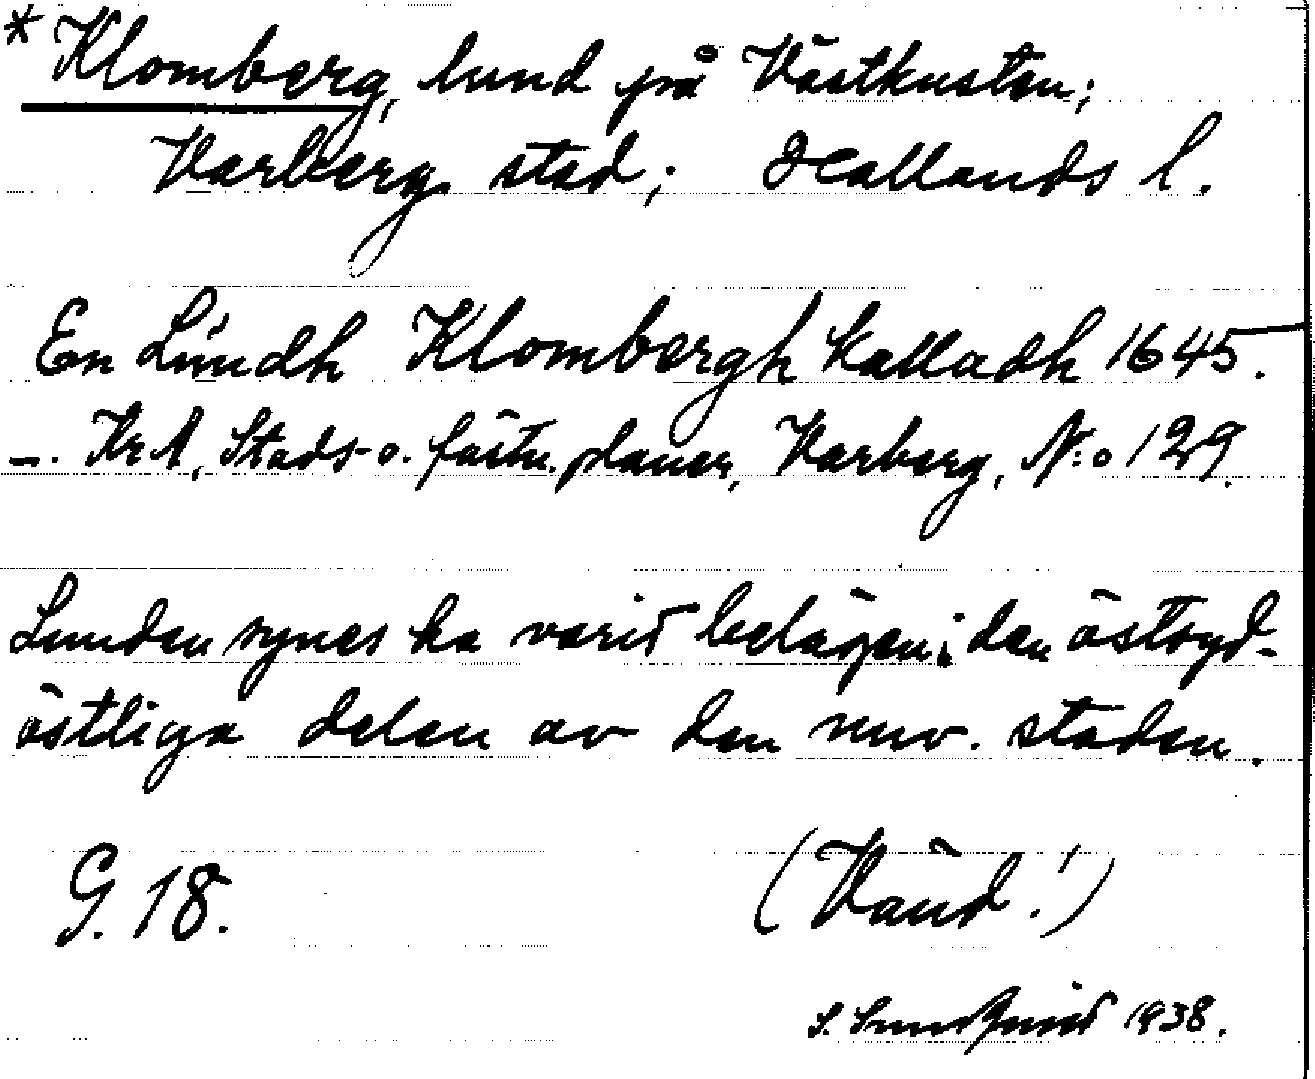 * Klomberg, lund på Västkusten;
Varberg stad; Hallands l.
En Lundh Klombergh kalladh 1645.
–. Kr A, Stads- o. fästn. planer, Varberg, N:o 129.
Lunden synes ha varit belägen i den östsyd-
östliga delen av den nuv. staden.
G. 18.
(Vänd!)
S. Lundquist 1938.